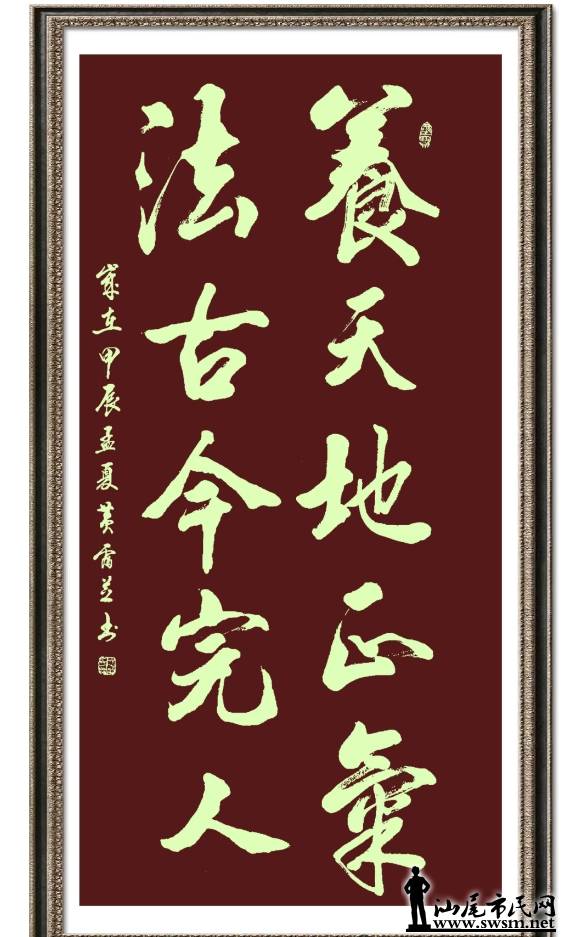 養天地正氣
法古今完人
歲在甲辰孟夏黄雷芝书
汕尾市民网
www.swsm.net